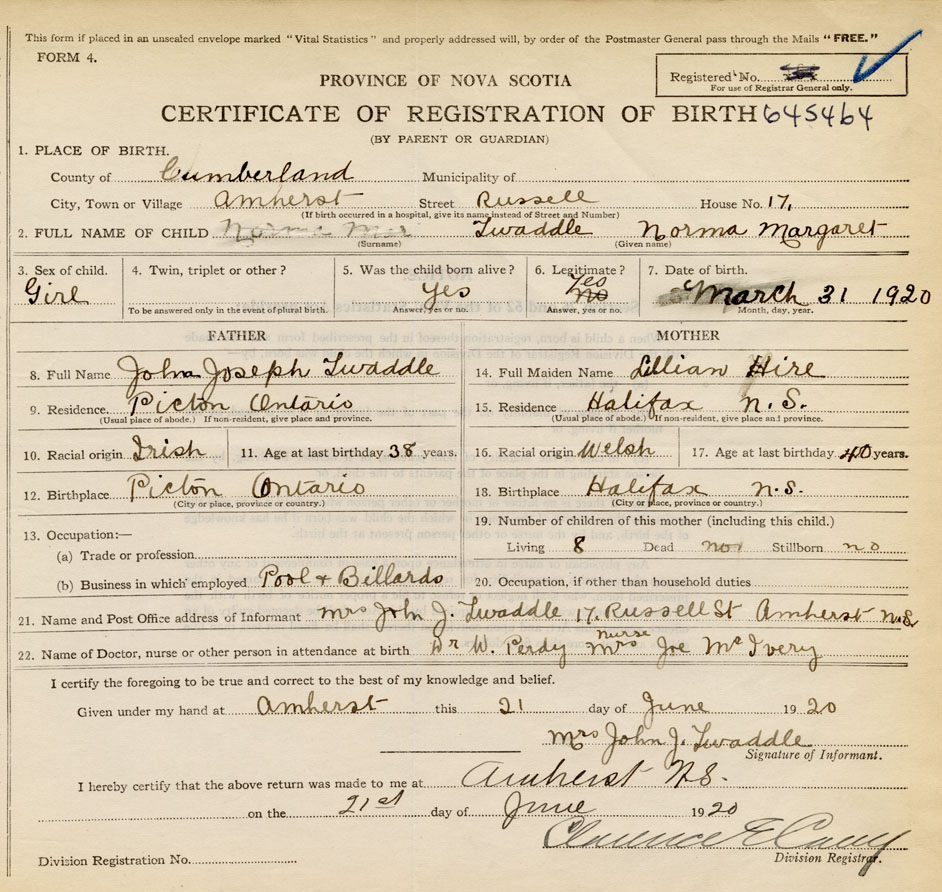 This form if placed in an unsealed envelope marked "Vital Statistics" and properly addressed will, by order of the Postmaster General pass through the Mails "FREE."
FORM 4.
Registered No.
For use of Registrar General only.
PROVINCE OF NOVA SCOTIA
CERTIFICATE OF REGISTRATION OF BIRTH 645464
(BY PARENT OR GUARDIAN)
1. PLACE OF BIRTH.
County of Cumberland Municipality of
City, Town or Village Amherst Street Russell House No. 17,
(If birth occurred in a hospital, give its name instead of Street and Number)
2. FULL NAME OF CHILD Twaddle Norma Margaret
(Surname) (Given name)
3. Sex of child. 4. Twin, triplet or other? 5. Was the child born alive? 6. Legitimate? 7. Date of birth.
Girl Yes Yes no March 31 1920
To be answered only in the event of plural birth. Answer, yes or no. Answer, yes or no. Month, day, year.
FATHER MOTHER
8. Full Name John Joseph Twaddle 14. Full Maiden Name Lillian Hire
9. Residence. Picton Ontario 15. Residence Halifax N.S.
(Usual place of abode.) If non-resident, give place and province. (Usual place of abode.) If non-resident, give place and province.
10. Racial origin Irish 11. Age at last birthday 38 years. 16. Racial origin Welsh 17. Age at last birthday 40 years.
12. Birthplace Picton Ontario 18. Birthplace Halifax n.s.
(City or place, province or country.) (City or place, province or country.)
13. Occupation:— 19. Number of children of this mother (including this child.)
(a) Trade or profession Living 8 Dead no Stillborn no
(b) Business in which employed Pool & Billards 20. Occupation, if other than household duties
21. Name and Post Office address of Informant Mrs John J. Twaddle 17. Russell St Amherst N.S.
22. Name of Doctor, nurse or other person in attendance at birth Dr W. Perdy Nurse Mrs Joe McIvery
I certify the foregoing to be true and correct to the best of my knowledge and belief.
Given under my hand at Amherst this 21 day of June 1920
Mrs John J. Twaddle
Signature of Informant.
I hereby certify that the above return was made to me at Amherst N.S.
on the 21st day of June 1920
Clarence E
Division Registrar.
Division Registration No.